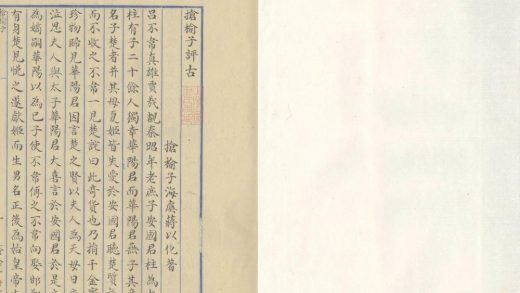 搶榆子評古
搶榆子海虞蔣以化著
呂不韋真雄賈哉觀秦昭年老庶子安國君柱為太
柱有子二十餘人獨幸華陽君而華陽君無子其
名子楚者并其母夏姬皆失愛於安國君聽楚質
而不收之不韋一見楚說曰此奇貨也乃捐千金
珍物歸見華陽君因言楚之賢以夫人為天日
泣思夫人與太子華陽君大喜言於安國君於是
為嫡嗣華陽以為己子使不韋傅之不韋向娶邯
有身楚見悅之遂獻姬而生男名正後為始皇帝